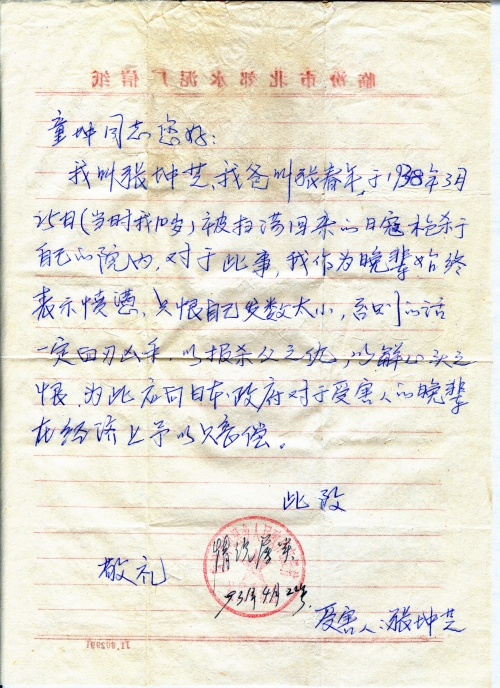 临汾市北郊水泥厂信纸
童坤同志您好：
我叫张坤芝，我爸叫张春年，于1938年3月
25日（当时我10岁）被扫荡回来的日寇枪杀于
自己的院内，对于此事，我作为晚辈始终
表示愤懑，只恨自己岁数太小，否则的话
一定白刃凶手，以报杀父之仇，以解心头之
恨，为此应向日本政府对于受害人的晚辈
在经济上予以赔偿。
此致
情况属实
敬礼
93年4月22号
受害人：张坤芝